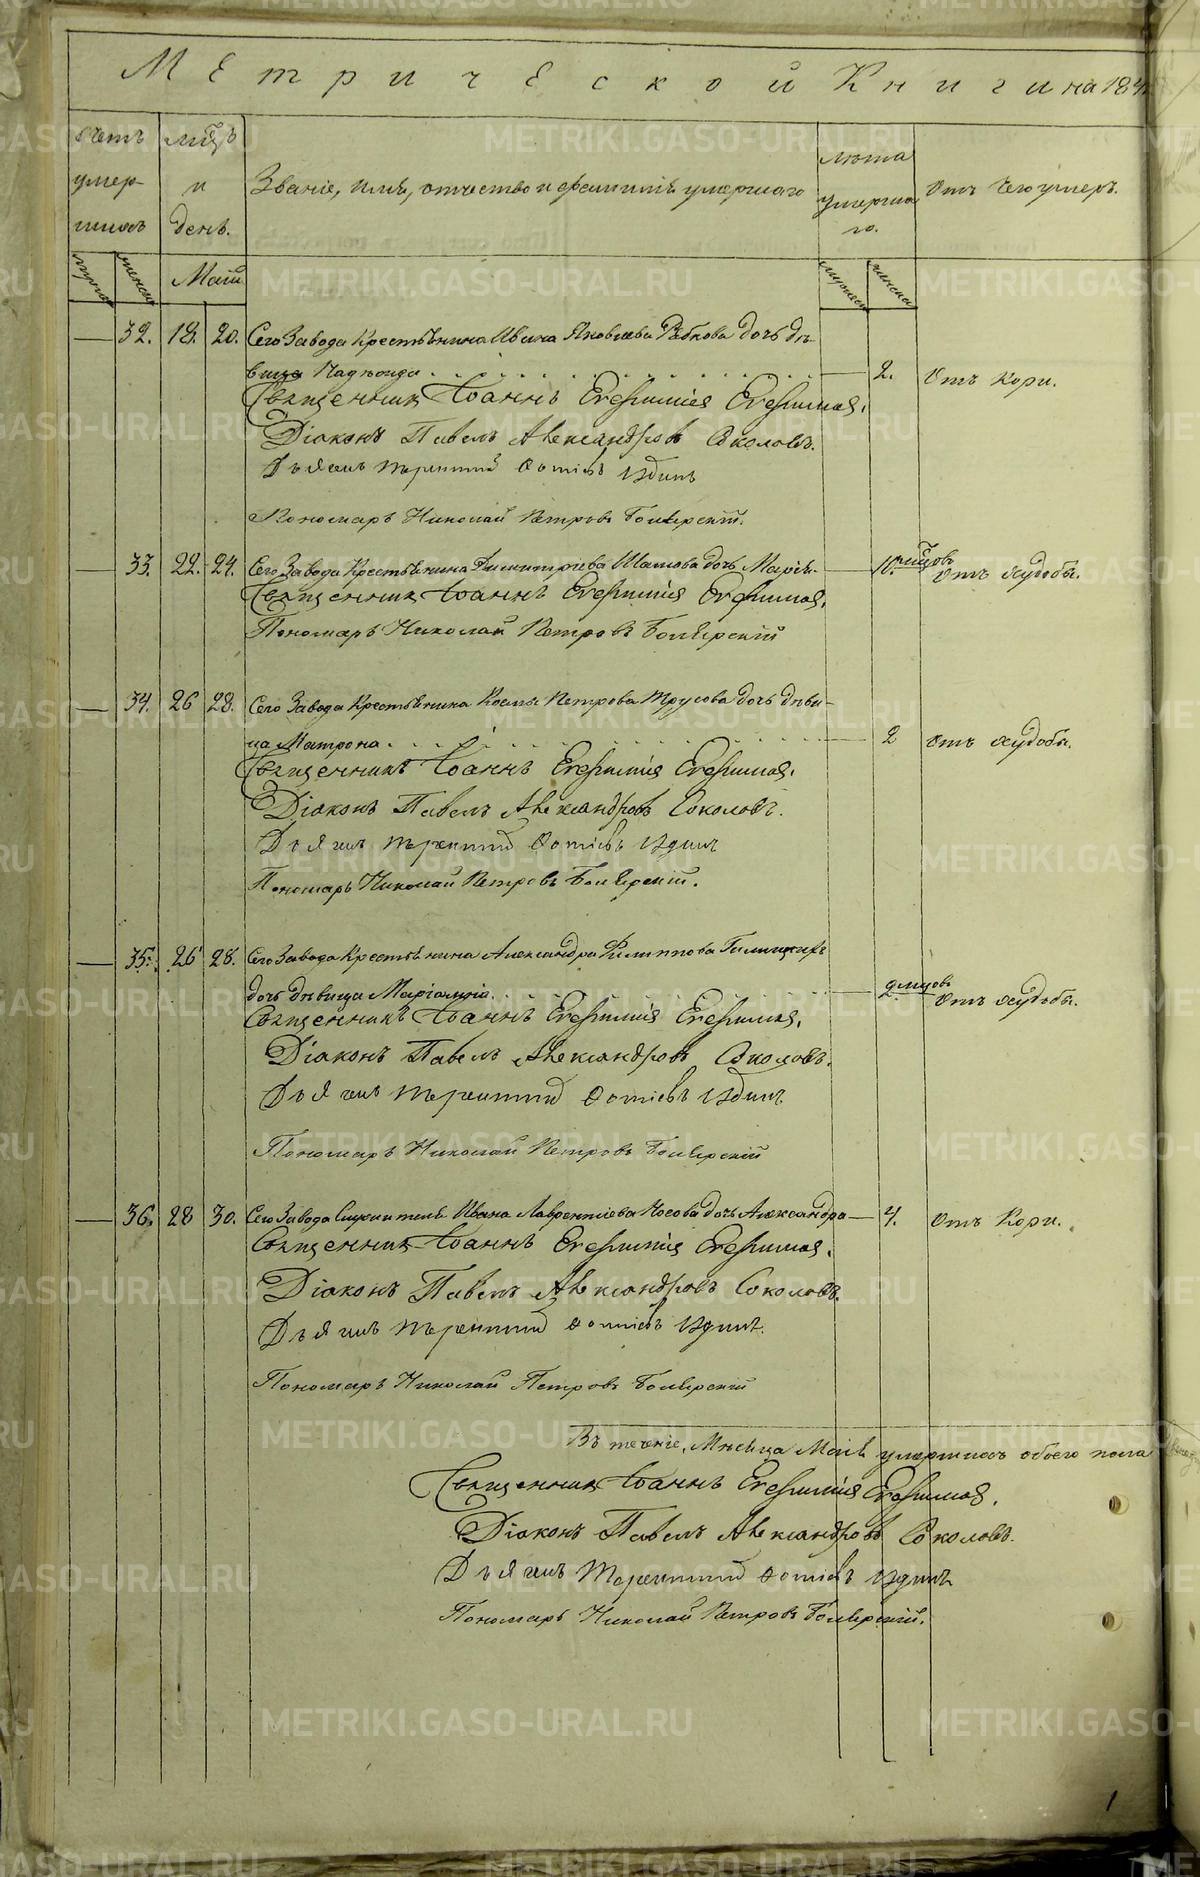 Метрической Книги на 184
Счетъ умер-шихъ
мѣсяцъ и день.
Званіе, имя, отчество и фамилія умершаго
лѣта умершаго.
Отъ чего умеръ.
мужеска
женска
Маій
мужеска
женска
— 32. 18. 20. Сего Завода Крестьянина Ивана Яковлева Рябкова дочь дѣ-
вица Надежда — 2. Отъ кори.
Священникъ Іоаннъ Евфиміев
Діаконъ Павелъ Александровъ Соколовъ.
Дьячекъ Терентій Фотіевъ
Пономарь Николай Петровъ
— 33. 22. 24. Сего Завода Крестьянина Димитріева дочь Марія. — 10. мѣсяцовъ Отъ худобы.
Священникъ Іоаннъ
Пономарь Николай Петровъ
— 34. 26 28. Сего Завода Крестьянина Космы Петрова Трусова дочь дѣви-
ца Матрона — 2 Отъ худобы.
Священникъ Іоаннъ
Діаконъ Павелъ Александровъ Соколовъ.
Дьячекъ Терентій Фотіевъ
Пономарь Николай Петровъ
— 35. 26 28. Сего Завода Крестьянина Александра Филиппова
дочь дѣвица — 2 мѣсяцовъ Отъ худобы.
Священникъ Іоаннъ
Діаконъ Павелъ Александровъ Соколовъ.
Дьячекъ Терентій Фотіевъ
Пономарь Николай Петровъ
— 36. 28 30. Сего Завода Служителя Ивана Лаврентіева Носова дочь Александра — 4. Отъ Кори.
Священникъ Іоаннъ
Діаконъ Павелъ Александровъ Соколовъ.
Дьячекъ Терентій Фотіевъ
Пономарь Николай Петровъ
Въ теченіе, Мѣсяца Маія умершихъ обоего пола
Священникъ Іоаннъ
Діаконъ Павелъ Александровъ Соколовъ.
Дьячекъ Терентій Фотіевъ
Пономарь Николай Петровъ
METRIKI.GASO-URAL.RU